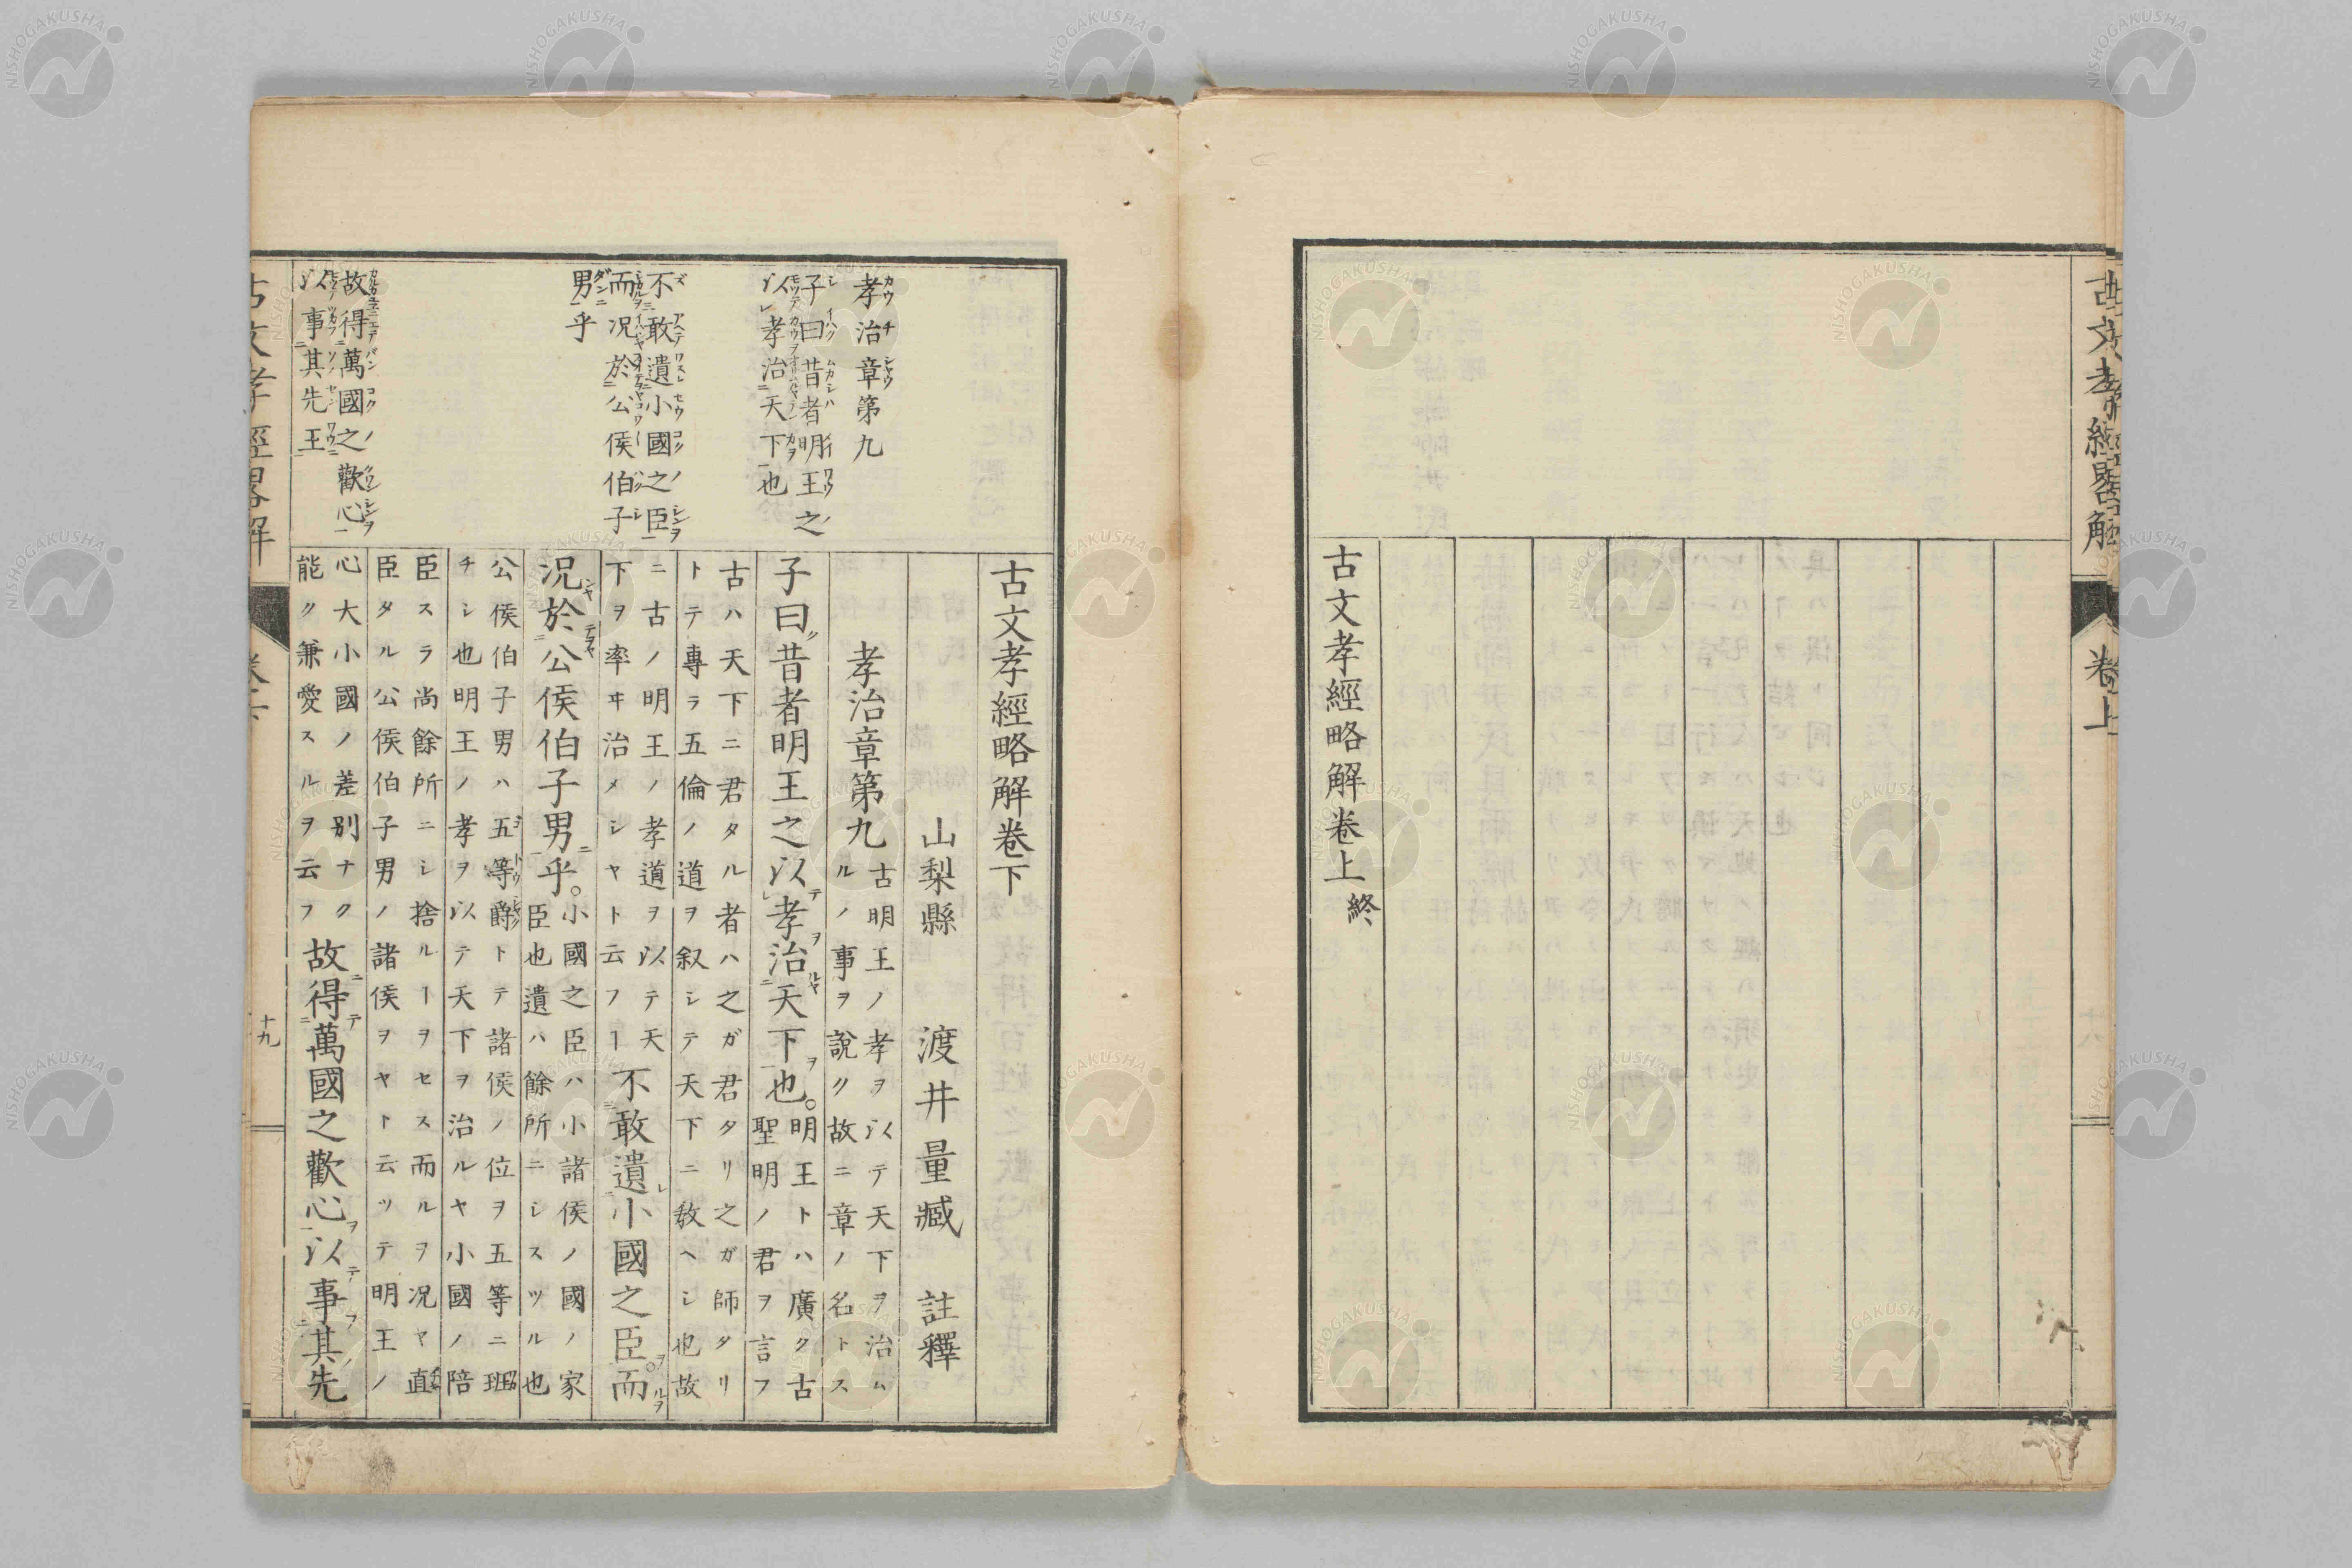 古文孝經畧解
卷上
古文孝經略解卷上終
孝治章第九
子曰昔者明王之
以孝治天下也
不敢遺小國之臣
而況於公侯伯子
男乎
故得萬國之歡心
以事其先王
古文孝經略解卷下
山梨縣 渡井量臧 註釋
孝治章第九 古明王ノ孝ヲ以テ天下ヲ治ム
ルノ事ヲ說ク故ニ章ノ名トス
子曰昔者明王之以孝治天下也。明王トハ廣ク古
聖明ノ君ヲ言フ
古ハ天下ニ君タル者ハ之ガ君タリ之ガ師タリ
トテ專ラ五倫ノ道ヲ叙シテ天下ニ敎ヘシ也故
ニ古ノ明王ノ孝道ヲ以テ天
下ヲ率ヰ治メシヤト云フヿ
不敢遺小國之臣。而
況於公侯伯子男乎。小國之臣ハ小諸侯ノ國ノ家
臣也遺ハ餘所ニシスツル也
公侯伯子男ハ五等爵トテ諸侯ノ位ヲ五等ニ班
チシ也明王ノ孝ヲ以テ天下ヲ治ルヤ小國ノ陪
臣スラ尚餘所ニシ捨ルヿヲセス而ルヲ況ヤ直
臣タル公侯伯子男ノ諸侯ヲヤト云ツテ明王ノ
心大小國ノ差別ナク
能ク兼愛スルヲ云フ
故得萬國之歡心以事其先
古文孝經畧解
卷下
十九
NISHOGAKUSHA